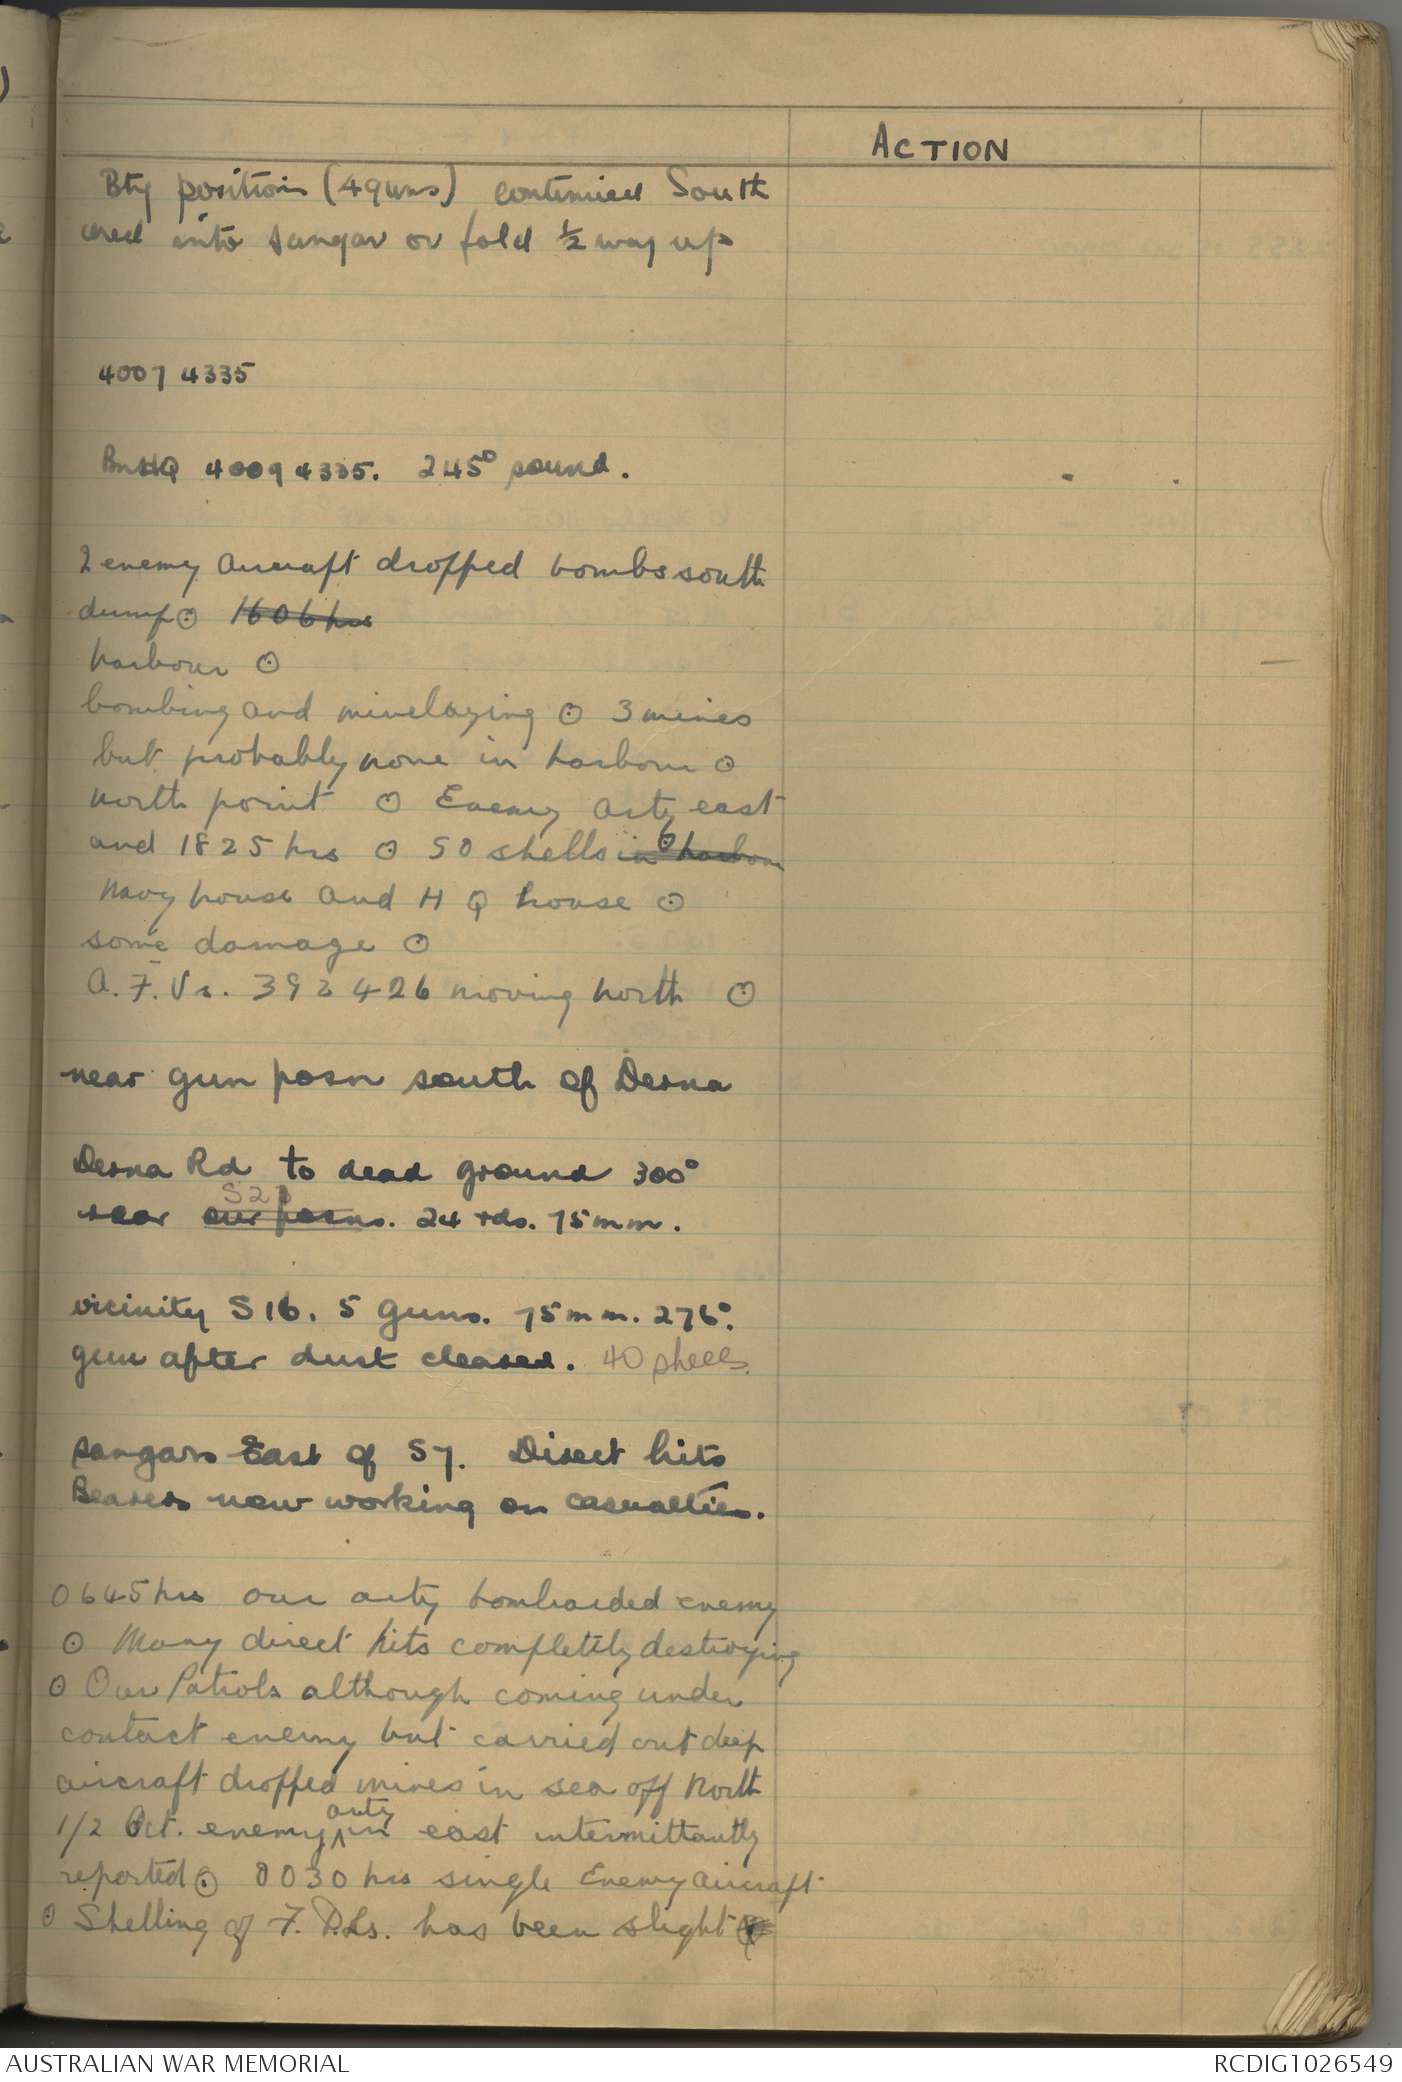 ACTION
Bty positions (4 guns) continued South
into sangar or fold ½ way up
4007 4335
BnHQ 4009 4335. 245° sound.
2 enemy aircraft dropped bombs south
dump ⊙ 1606 hrs
harbour ⊙
bombing and minelaying ⊙ 3 mines
but probably none in harbour ⊙
North point ⊙ Enemy arty east
and 1825 hrs ⊙ 50 shells in harbour
Navy house and H Q house ⊙
some damage ⊙
A.F.Vs. 392426 moving north ⊙
near gun posn south of Derna
Derna Rd to dead ground 300°
S2
near our posns. 24 rds. 75mm.
vicinity S16. 5 guns. 75mm. 276°.
gun after dust cleared. 40 shells.
sangars East of S7. Direct hits
Bearers now working on casualties.
0645 hrs our arty bombarded enemy
⊙ Many direct hits completely destroying
⊙ Our Patrols although coming under
contact enemy but carried out deep
aircraft dropped mines in sea off North
1/2 Oct. enemy arty in east intermittantly
reported ⊙ 0030 hrs single Enemy aircraft
⊙ Shelling of F.D.Ls. has been slight
AUSTRALIAN WAR MEMORIAL
RCDIG1026549